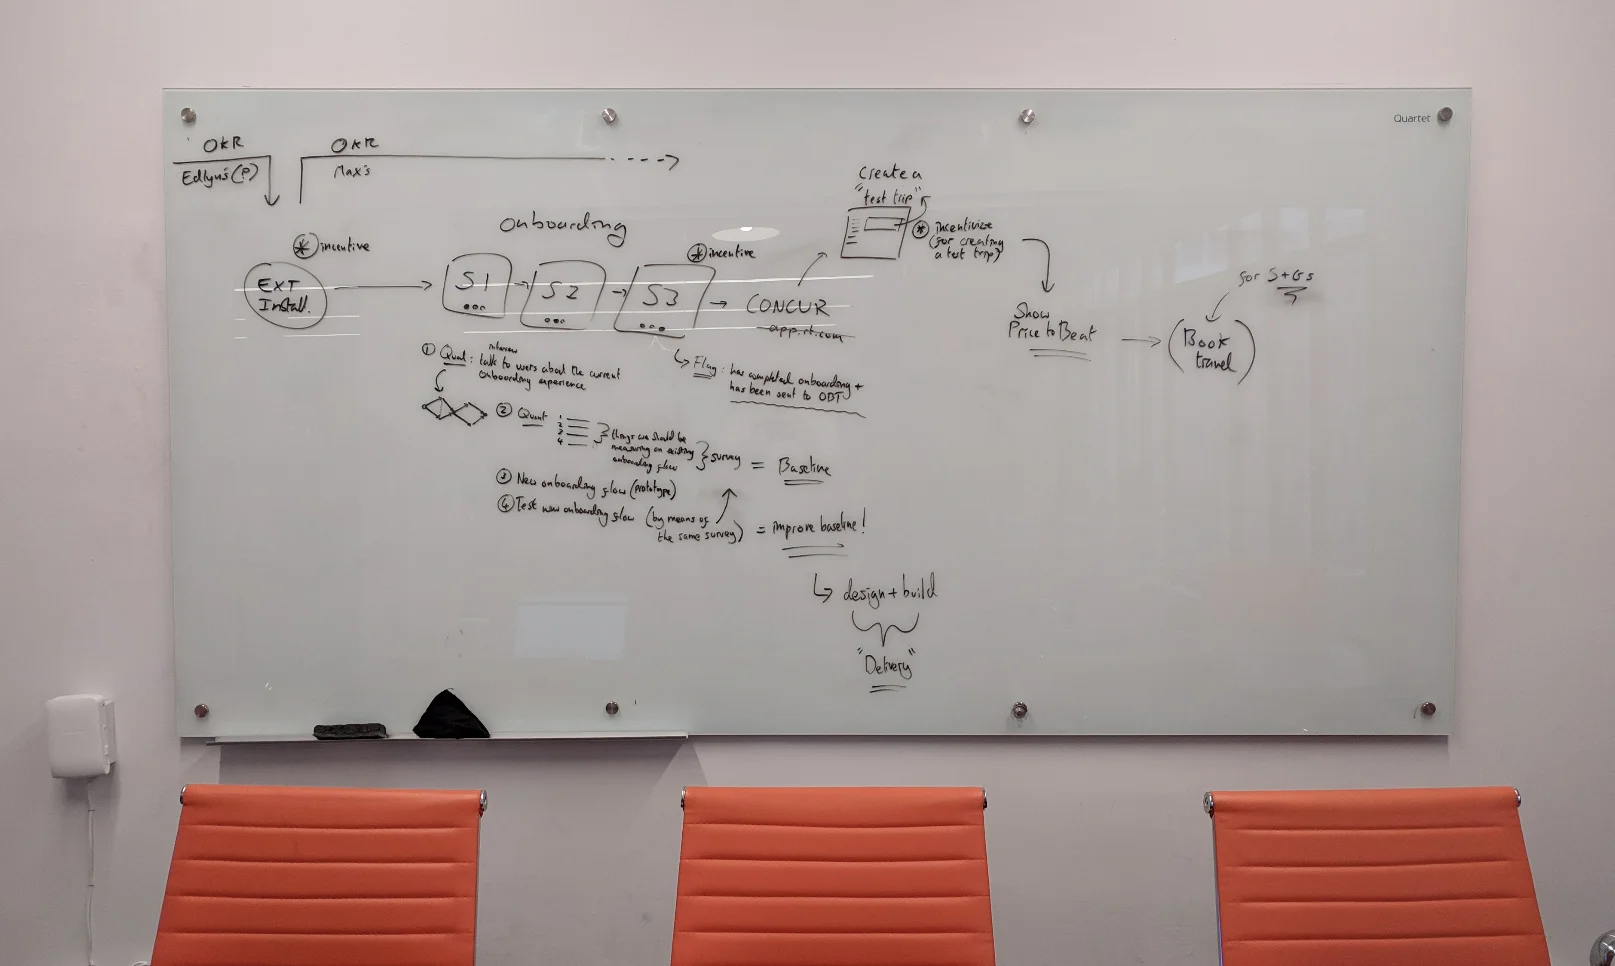 Quartet
OKR
Edlyn's (?)
OKR
Max's
* incentive
EXT
Install.
Onboarding
S1
...
S2
...
S3
...
* incentive
CONCUR
app.rt.com
Create a
"test trip"
* incentivize
(for creating
a test trip)
Show
Price to Beat
(Book
travel)
for S+Gs
Flag: has completed onboarding +
has been sent to OBT
interview
① Qual: talk to users about the current
onboarding experience
② Quant
1
2
3
4
things we should be
measuring on existing
onboarding flow
survey = Baseline
③ New onboarding flow (prototype)
④ Test new onboarding flow (by means of
the same survey) = improve baseline!
design + build
"Delivery"